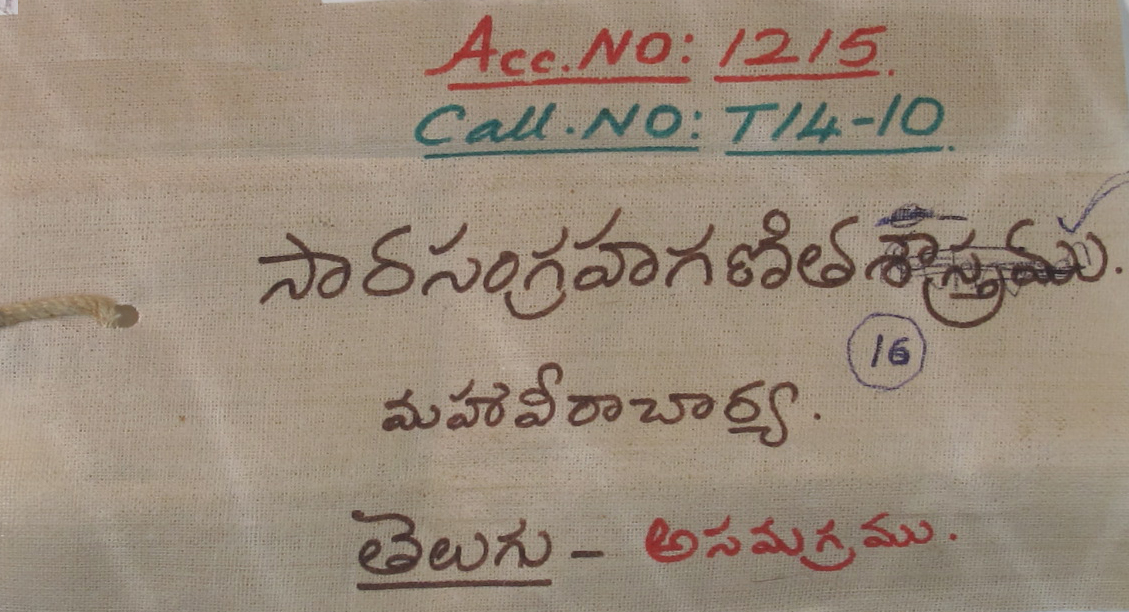 Acc.NO: 1215.
Call.NO: T14-10.
సారసంగ్రహగణిత శాస్త్రము.
16
మహావీరాచార్య.
తెలుగు - అసమగ్రము.